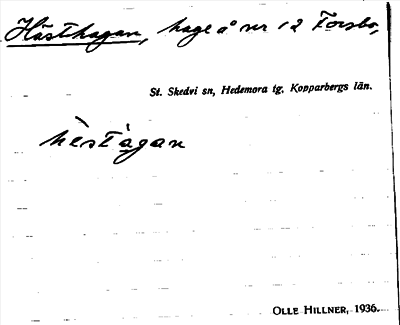 Hästhagan, hage å nr 12 Forsbo,
St. Skedvi sn, Hedemora tg. Kopparbergs län.
hèstàgan
OLLE HILLNER, 1936.